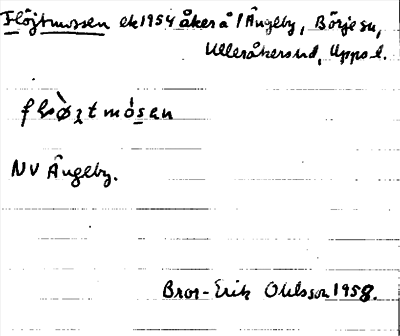 Flöjtmossen ek 1954 åker å / Ängeby, Börje sn,
Ulleråkers hd, Upps. l.
NV Ängeby.
Bror-Erik Ohlsson 1958.